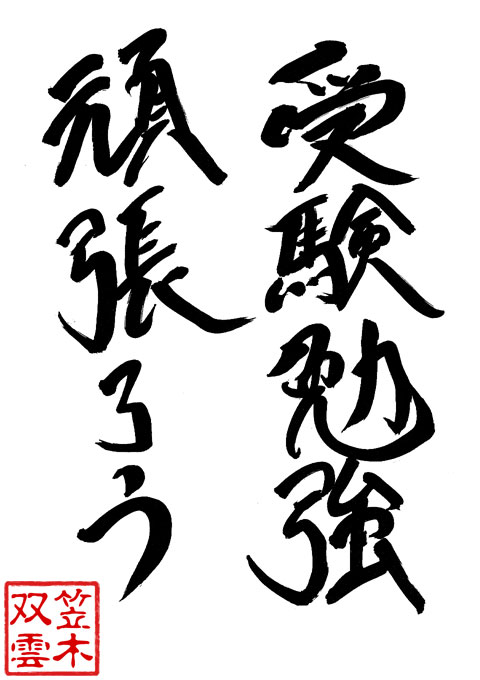 受験勉強
頑張ろう
笠木
双雲